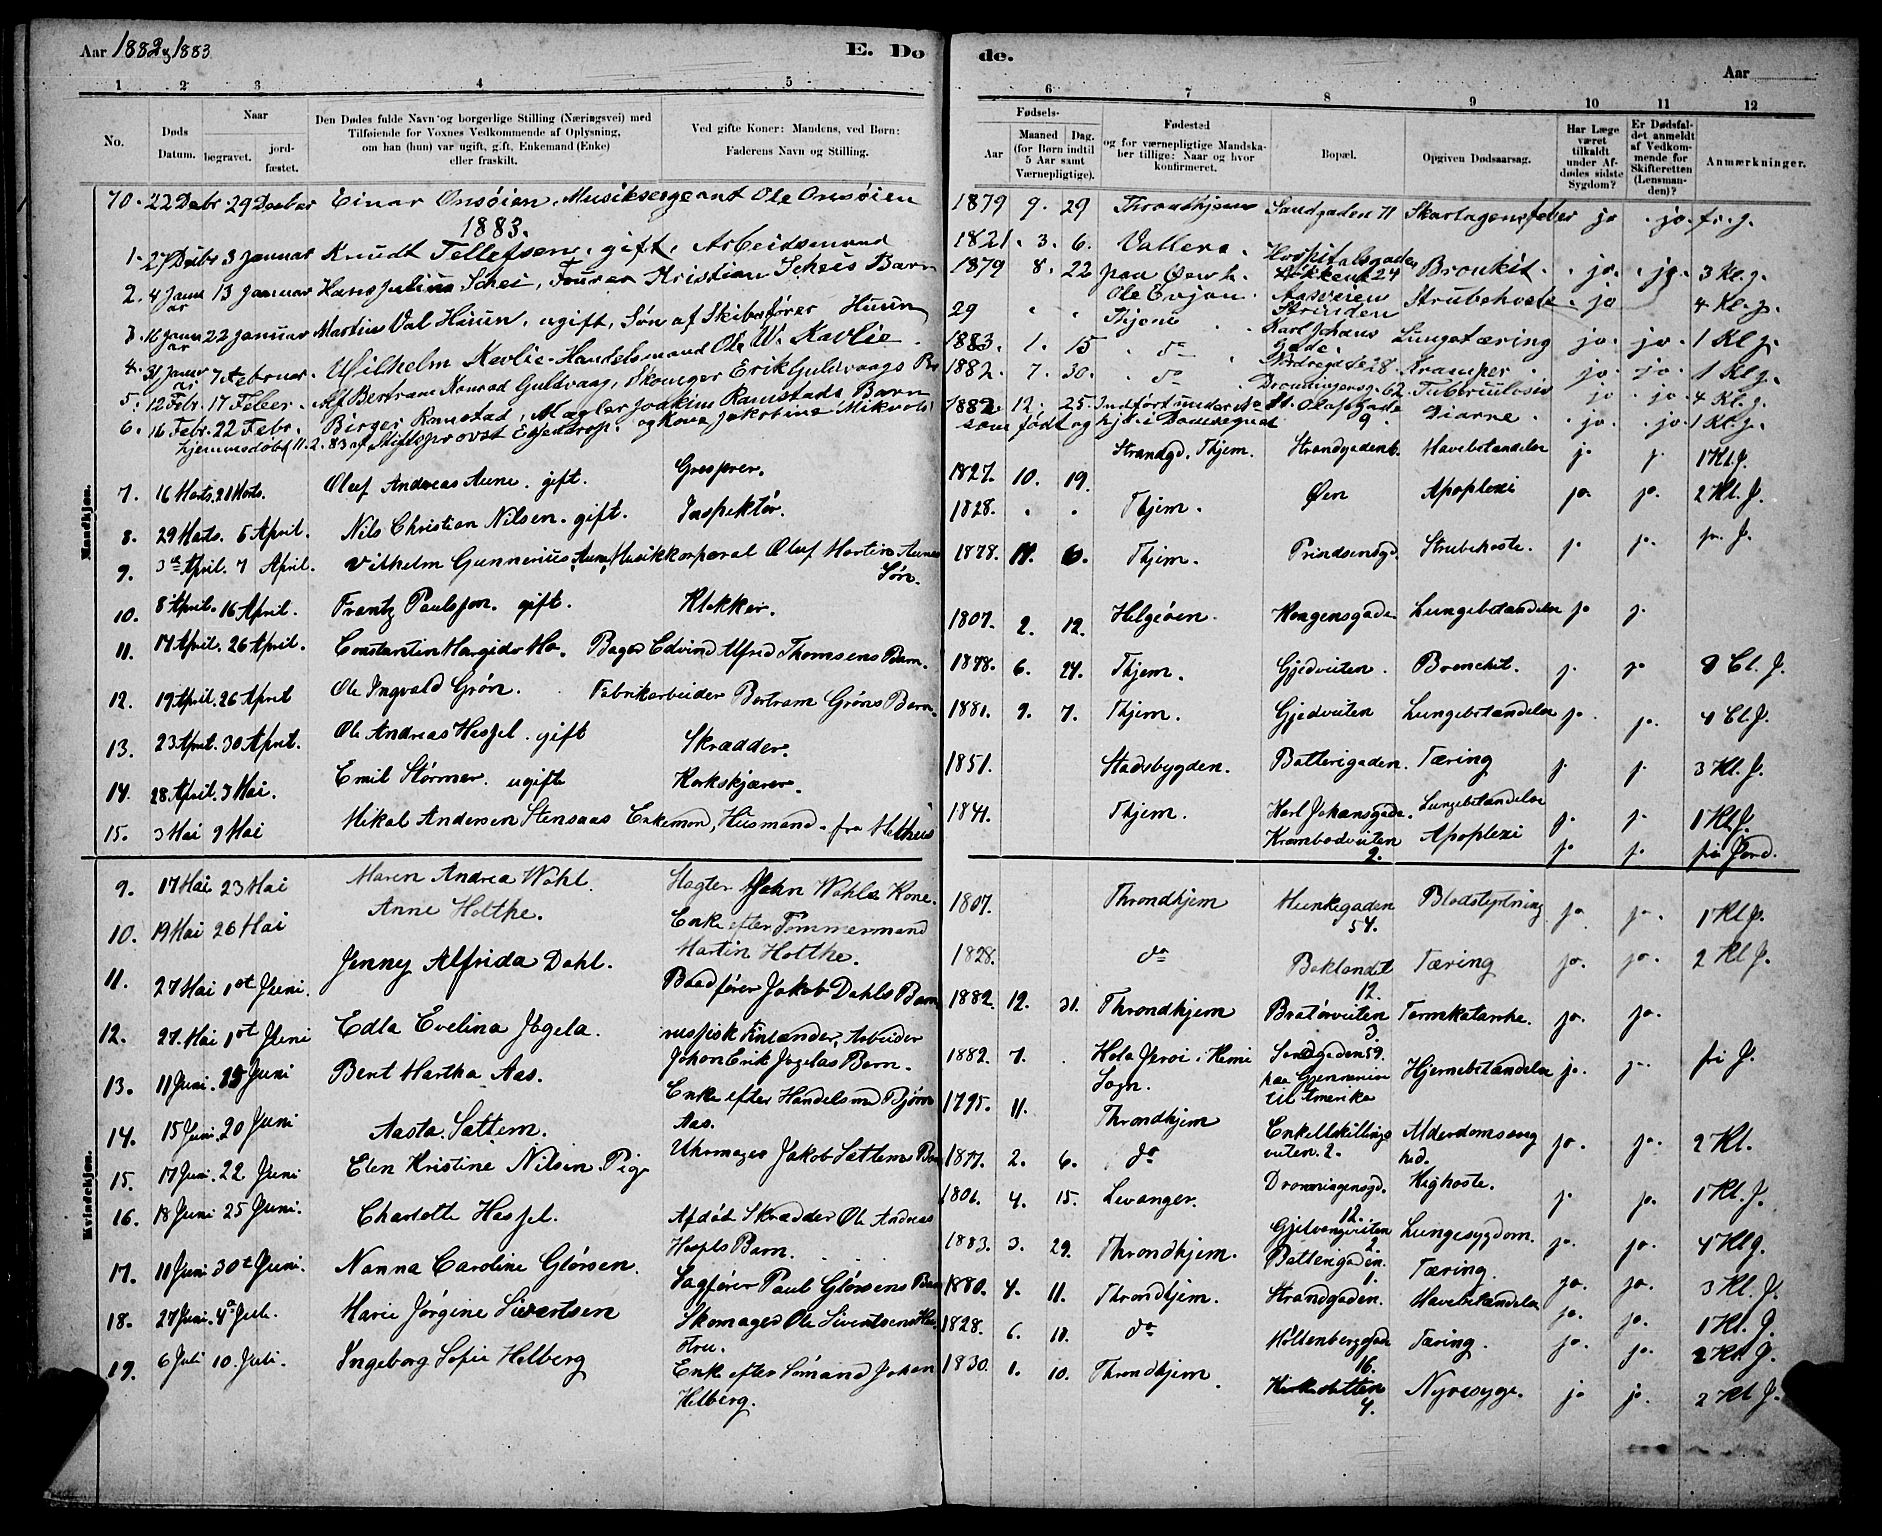 Aar 1882 & 1883
E. Dø
de.
Aar
1 2 3 4 5
6 7 8 9 10 11 12
No.
Døds Datum.
Naar
begravet.
jordfæstet.
Den Dødes fulde Navn og borgerlige Stilling (Næringsvei) med
Tilføiende for Voxnes Vedkommende af Oplysning,
om han (hun) var ugift, gift, Enkemand (Enke)
eller fraskilt.
Ved gifte Koner: Mandens, ved Børn:
Faderens Navn og Stilling.
Fødsels-
Aar
Maaned (for Børn indtil 5 Aar samt Værnepligtige).
Dag.
Fødested
og for værnepligtige Mandskaber tillige: Naar og hvor konfirmeret.
Bopæl.
Opgiven Dødsaarsag.
Har Læge været tilkaldt under Afdødes sidste Sygdom?
Er Dødsfaldet anmeldt af Vedkommende for Skifteretten (Lensmanden)?
Anmærkninger.
Mandkjøn.
70. 22 Debr. 29 Debr Einar Onsøien, Musiksergeant Ole Onsøien 1879 9. 29 Trondhjem Sandgaden 71 Skarlagensfeber jo jo. fr. g.
1883.
1. 27 Debr 3 Januar Knudt Tellefsen, gift, Arbeidsmand 1821. 3. 6. Hospitalsgaden Bronkit. jo. jo. 3 Kl. g.
2. 4 Januar 13 Januar Hans Julius Schei, Fourer Kristian Scheis Barn 1879 8. 22 Aasveien Strinden Strubehoste jo 4 Kl. g.
3. 16 Januar 22 Januar Martius Val Huun, ugift, Søn af Skibsfører Huun 29 Thjem Karl Johans gade Lungetæring jo. jo. 1 Kl g.
4. 31 Januar 7 Februar. Wilhelm Kavlie Handelsmand Ole W. Kavlie 1883. 1. 15 do Nordregde 28. Kramper jo. jo. 1 Kl g.
5. 12 Febr. 17 Feber. Alf Bertram Konrad Guldvaag, Erik Guldvaags 1882. 7. 30. do Dronningensg. 62. Tuberculosis jo jo. 4 Kl. g.
6. 16 Febr. 22 Febr. Birger Ramstad, Mægler Joakim Ramstads Barn og Kone Jakobine 1882 12. 25. St. Olafsgade 9 Diarre jo. jo. 1 Kl. g.
hjemmedøbt 11.2.83 af Stiftsprovst
som født og hjd. i Daabsregnst
7. 16 Marts. 21 Marts. Oluf Andreas Aune. gift. Grosserer. 1827. 10. 19. Strandgd. Thjem. Strandgaden 6. Mavebetændelse j. j. 1 Kl. J.
8. 29 Marts. 5 April. Nils Christian Nilsen. gift. Inspektør. 1828. Thjem. Øen Apoplexi jo. jo. 2 Kl. J.
9. 3de April. 7 April. Vilhelm Gunnerius Aune, Musikkorporal Oluf Martin Aunes Søn. 1878. 11. 6. Thjem. Prindsensgd. Strubehoste. jo jo. fr. J.
10. 8 April. 16 April. Frantz Paulssen. gift. Klokker. 1807. 2. 12. Helgeøen. Kongensgade Lungebetændelse jo j.
11. 17 April. 26 April. Constantin Bager Edvind Alfred Thomsens Barn. 1878. 6. 24. Thjem. Gjedveiten. Bronchit. jo. jo 8 Cl. J.
12. 19 April. 26 April Ole Ingvald Grøn. Fabrikarbeider Bertram Grøns Barn. 1881. 9. 7. Thjem. Gjedveiten Lungebetændelse jo. jo. 4 Cl. J.
13. 23 April. 30 April. Ole Andreas Hassel. gift Skrædder. 1851. Stadsbygden. Batterigaden. Tæring jo jo. 3 Kl. J.
14. 28 April. 3 Mai. Emil Størmer. ugift Korkskjærer. 1841. Thjem. Karl Johansgade. Lungebetændelse jo. jo. 1 Kl. J.
15. 3 Mai 9 Mai Mikal Andersen Stensaas Enkemand, Husmand fra Krambodveiten 2. Apoplexi jo jo. fri Jord.
Kvindekjøn.
9. 17 Mai 23 Mai Maren Andrea Wahl. Slagter John Wahls Kone. 1807. Throndhjem Munkegaden 54. Blodstyrtning jo. jo. 1 Kl J.
10. 19 Mai 26 Mai Anne Holthe. Enke efter Tømmermand Martin Holthe. 1828. do Baklandet 12. Tæring jo. jo. 2 Kl J.
11. 27 Mai 1st Juni. Jenny Alfrida Dahl. Baadfører Jakob Dahls Barn 1882 12. 31. Throndhjem Bratørveiten 3. Tarmkatarrhe. jo. jo.
12. 27. Mai 1st Juni Edla Evelina Jøgela. russisk Finlænder, Arbeider Johan Erik Jøgelas Barn. 1882. 7. Kola Jervi i Kemi Sogn. Sandgaden 59. paa Gjennemreise til Amerika Hjernebetændelse jo. jo. fri J.
13. 11 Juni. 15 Juni Berit Martha Aas. Enke efter Handelsmd Bjørn Aas. 1795. 11. Throndhjem Enkeltskillingsveiten. 2. Alderdomssvaghed. jo. jo. 2 Kl.
14. 15 Juni. 20 Juni Aasta Sættem. Uhrmager Jakob Sættems Barn 1877. 2. 6. do Dronningensgd. 12. Kighoste. j. jo. 1 Kl. J.
15. 17 Juni. 22 Juni Elen Kristine Nilsen Pige 1801. 4. 15. Levanger. Gjelvangveiten 2. Lungesygdom. jo. jo. 4 Kl g.
16. 18 Juni 25 Juni. Charlotte Hassel. Afdød Skrædder Ole Andreas Hassels Barn. 1883. 3. 29. Throndhjem. Batterigaden. 1. Tæring. jo. jo. 3 Kl. J.
17. 11 Juni 30te Juni. Nanna Caroline Glørsen. Sagfører Paul Glørsens Barn 1880. 4. 11. Throndhjem. Strandgaden. Mavebetændelse jo. jo. 1 Kl. J.
18. 27 Juni. 4de Juli. Marie Jørgine Sivertsen Skomager Ole Sivertsens Hustru. 1828. 6. 11. do Møllenberggade 16. Tæring. jo. jo. 2 Kl. J.
19. 6 Juli 10. Juli. Ingeborg Sofie Helberg Enke efter Sømand Johan Helberg. 1830. 1. 10. Throndhjem. 4. Nyresyge. jo j. 2 Kl J.